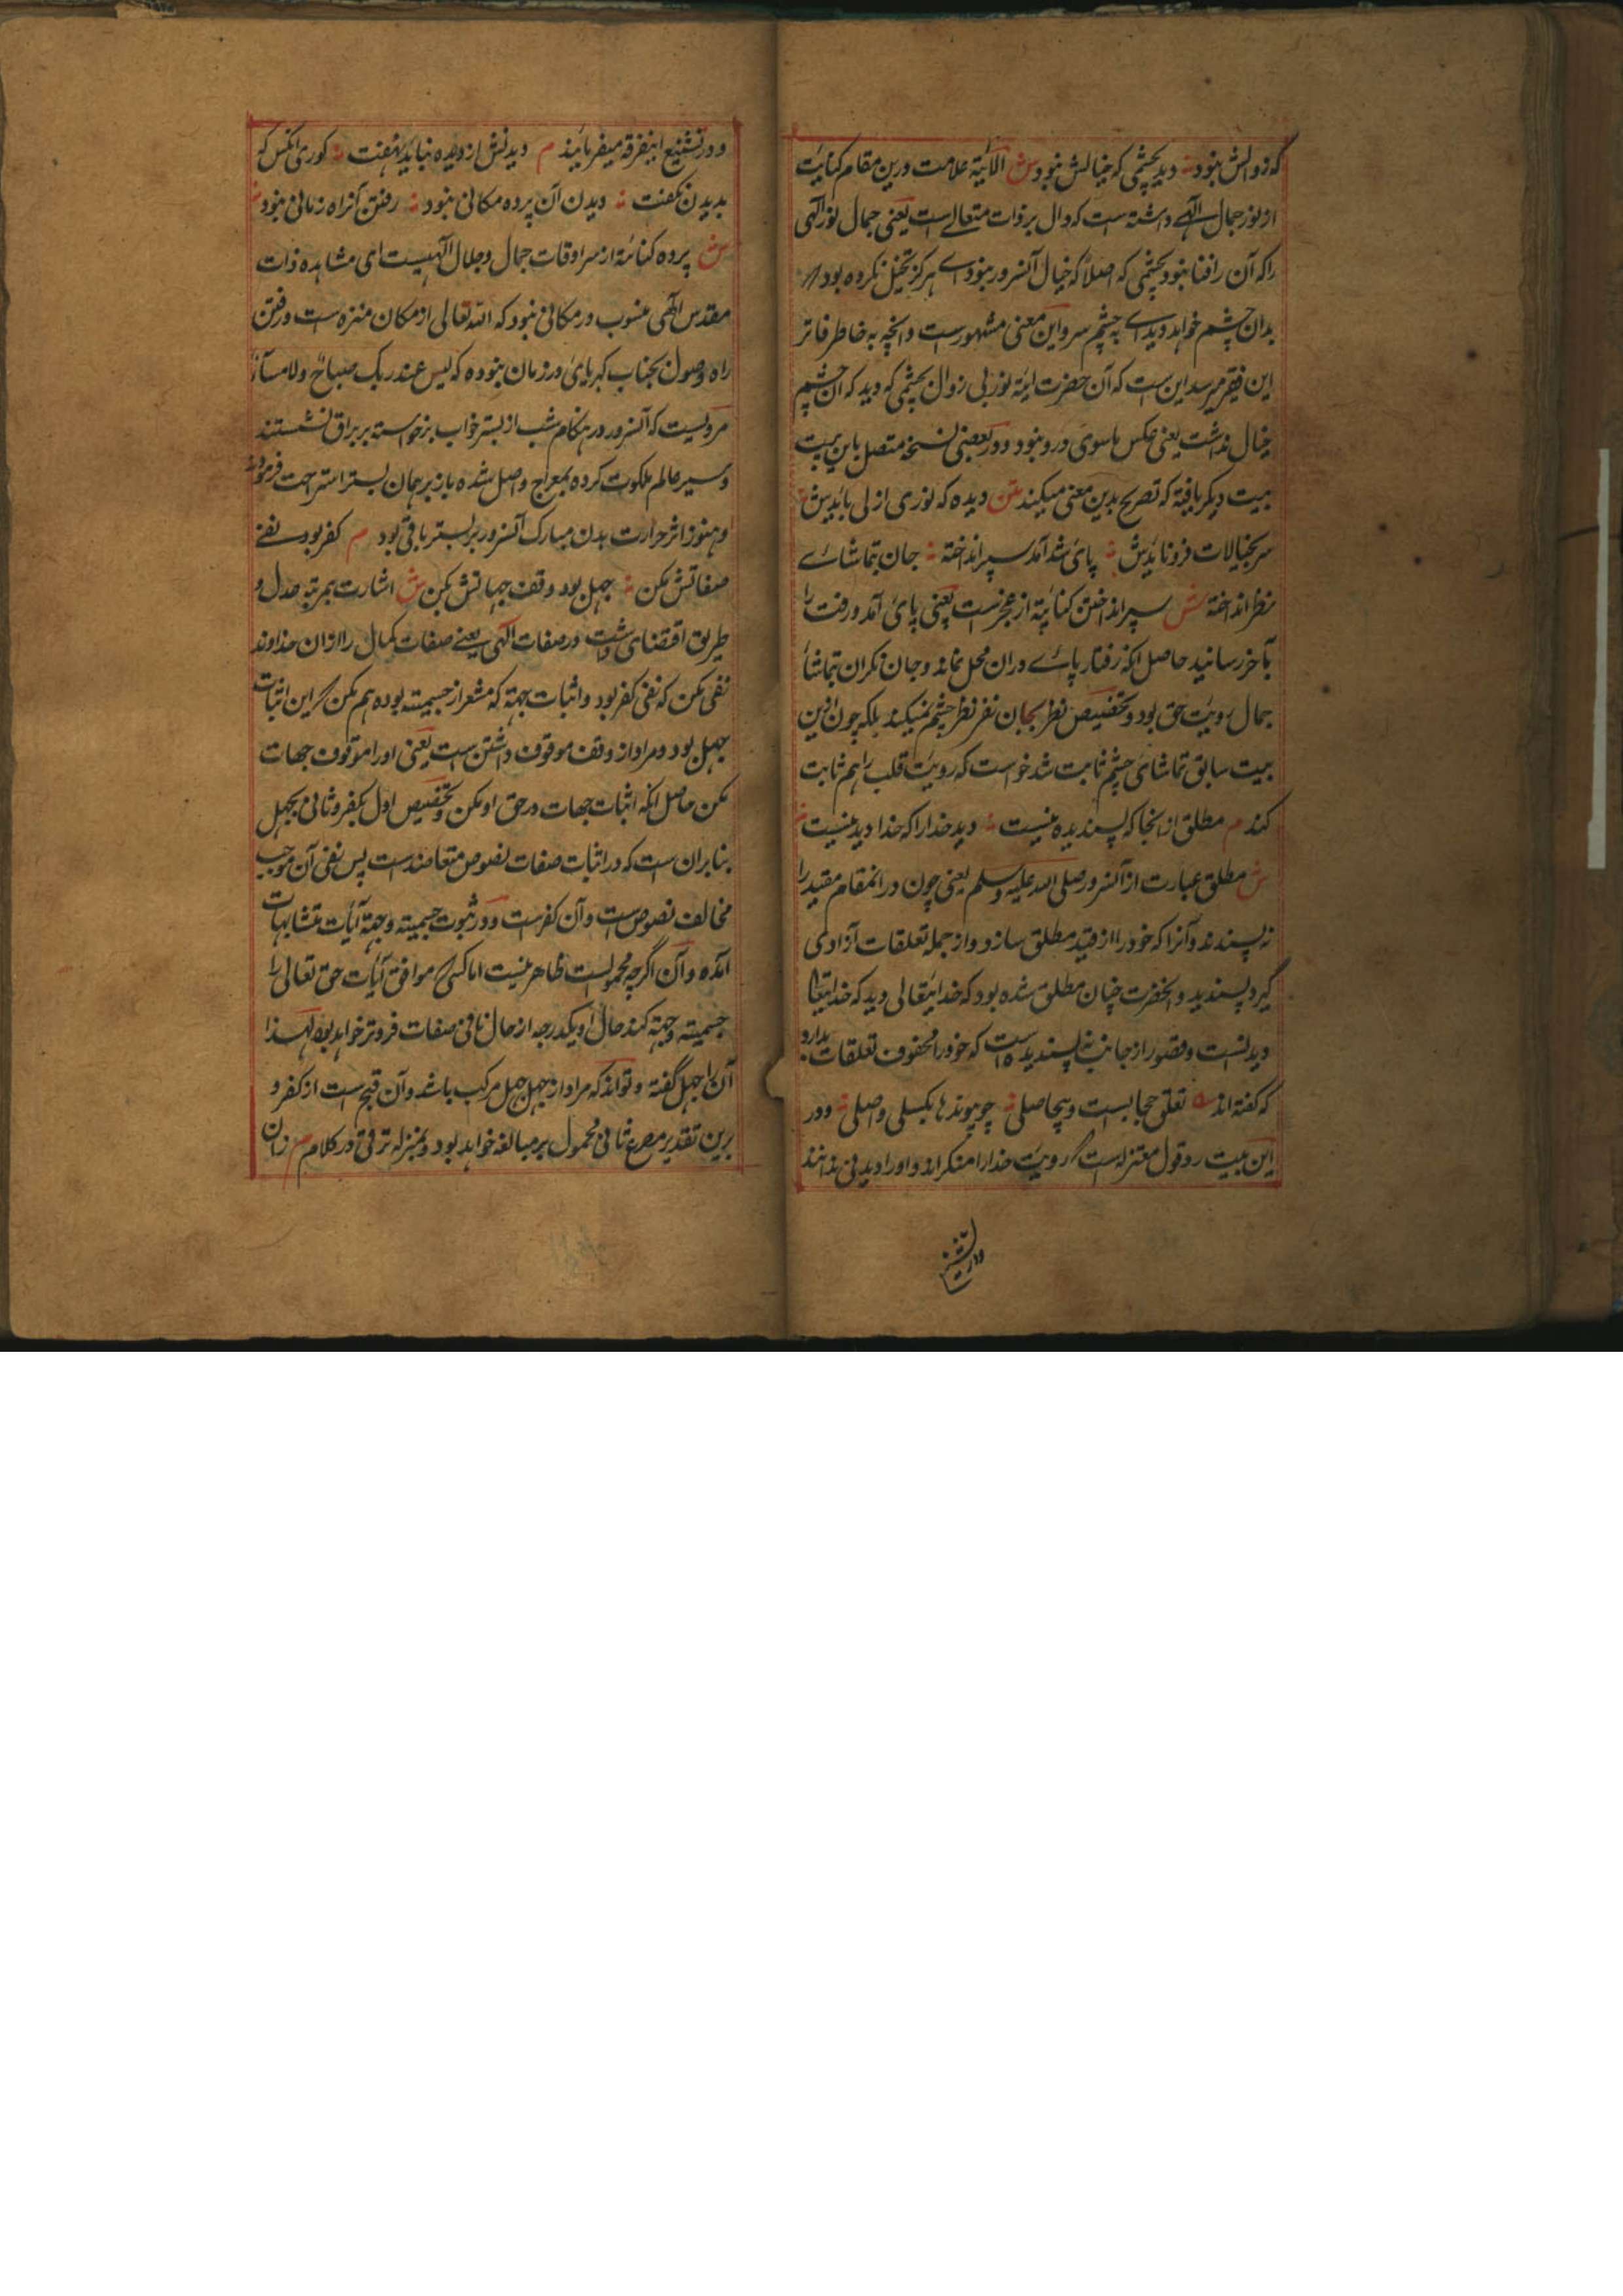 که زوالش نبود ؞ دید بچشمی که خیالش نبود ش الآیة علامت و درین مقام کنایت
از نور جمال الهی داشته است که دال بر ذات متعالی است یعنی جمال نور الهی
را که آن را فنا نبود بچشمی که اصلا که خیال آنسرور نبودی هرگز تخیل نکرده بود
بدان چشم خواهد دیدی به چشم سر و این معنی مشهورست و آنچه به خاطر فاتر
این فقیر میرسد این ست که آن حضرت آیة نور بی زوال بچشمی که دید که آن چشم
خیال نداشت یعنی عکس ماسوی درو نبود و در بعضی نسخه متصل باین بیت
بیت دیگر یافته که تصریح بدین معنی میکند متن دیده که نوری ازلی بایدش ؞
سر بخیالات فرو نایدش ؞ پای شد آمد سپر انداخته ؞ جان بتماشای
نظر انداخته ش سپر انداختن کنایة از عجزست یعنی پای آمد و رفت را
بآخر رسانید حاصل آنکه رفتار پای دران محل نماند و جان نگران تماشا
جمال رویت حق بود و تخصیص نظر بجان نفی نظر چشم نمیکند بلکه چون ازین
بیت سابق تماشای چشم ثابت شد خواست که رویت قلب را هم ثابت
کند م مطلق ازانجا که پسندیده نیست ؞ دید خدا را که خدا دیدنیست ؞
ش مطلق عبارت از آنسرور صلی الله علیه و سلم یعنی چون در انمقام مقید را
نه پسندند و آنرا که خود را از قید مطلق سازد و از جمله تعلقات آزادی
گیرد پسندید و آنحضرت چنان مطلق شده بود که خدایتعالی دید که خدایتعالی
دیدنیست و قصور از جانب نه پسندیده است که خود را محفوف تعلقات بدارد
که گفته اند ه تعلق حجابست و بیحاصلی ؞ چو پیوندها بگسلی واصلی ؞ و در
این بیت رد قول معتزله است که رویت خدا را منکراند و او را دیدنی ندانند
و در تشنیع اینفرقه میفرمایند م دیدنش از دیده نباید نهفت ؞ کوری آنکس که
بدیدن نگفت ؞ دیدن آن پرده مکانی نبود ؞ رفتن آنراه زمانی نبود ؞
ش پرده کنایة از سرادقات جمال و جلال الهیست ای مشاهده ذات
مقدس الهی منسوب در مکانی نبود که الله تعالی از مکان منزه ست و رفتن
راه وصول بجناب کبریای در زمان نبوده که لیس عند ربک صباح ولا مساء
مرویست که آنسرور در هنگام شب از بستر خواب برخواسته بر براق نشستند
و سیر عالم ملکوت کرده بمعراج واصل شده باز بر همان بستر استراحت فرمودند
و هنوز اثر حرارت بدن مبارک آنسرور بر بستر باقی بود م کفر بود نفی
صفاتش مکن ؞ جهل بود وقف جهاتش مکن ش اشارت بمرتبه عدل و
طریق اقتضای داشت در صفات الهی یعنی صفات کمال را از ان خداوند
نفی مکن که نفی کفر بود و اثبات جهة که مشعر از جسمیته بوده هم مکن که این اثبات
جهل بود و مراد از وقف موقوف داشتن ست یعنی او را موقوف جهات
مکن حاصل آنکه اثبات جهات در حق او مکن و تخصیص اول بکفر و ثانی بجهل
بنا بران ست که در اثبات صفات نصوص متعاضدست پس نفی آن موجب
مخالف نصوص ست و آن کفرست و در ثبوت جسمیته و جهة آیات متشابهات
آمده و آن اگرچه محمول بست ظاهر نیست اما کسی که موافق آیات حق تعالی را
جسمیته و جهة کند حال او یکدرجه از حال نافی صفات فروتر خواهد بود لهذا
آن را جهل گفته و تواند که مراد از جهل جهل مرکب باشد و آن قبیح ست از کفر و
برین تقدیر مصرع ثانی محمول بر مبالغه خواهد بود و بمنزله ترقی در کلام م زان
و در تشنیع